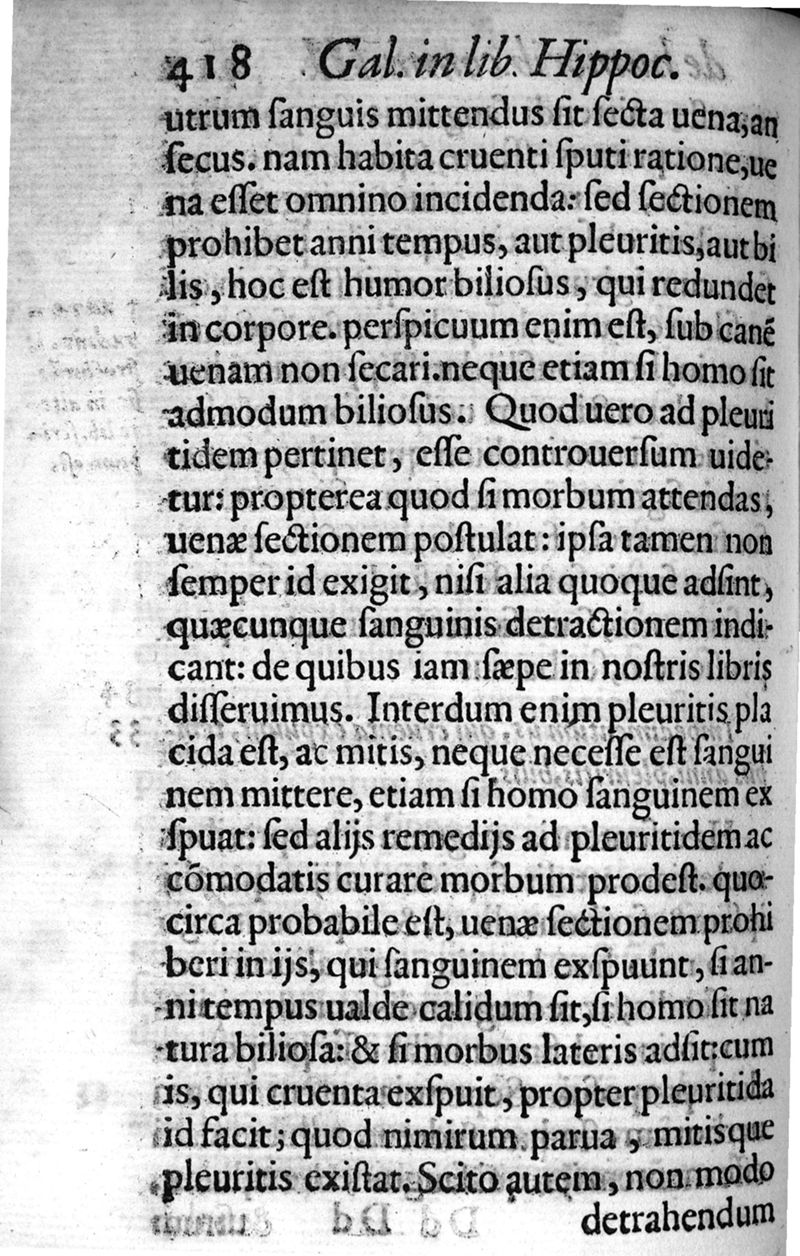 418 Gal. in lib. Hippoc.
utrum ſanguis mittendus ſit ſecta uena, an
ſecus. nam habita cruenti ſputi ratione, ue
na eſſet omnino incidenda: ſed ſectionem
prohibet anni tempus, aut pleuritis, aut bi
lis, hoc eſt humor bilioſus, qui redundet
in corpore. perſpicuum enim eſt, ſub canẽ
uenam non ſecari. neque etiam ſi homo ſit
admodum bilioſus. Quod uero ad pleuri
tidem pertinet, eſſe controuerſum uide-
tur: propterea quod ſi morbum attendas,
uenæ ſectionem poſtulat: ipſa tamen non
ſemper id exigit, niſi alia quoque adſint,
quæcunque ſanguinis detractionem indi-
cant: de quibus iam ſæpe in noſtris libris
diſſeruimus. Interdum enim pleuritis pla
cida eſt, ac mitis, neque neceſſe eſt ſangui
nem mittere, etiam ſi homo ſanguinem ex
ſpuat: ſed alijs remedijs ad pleuritidem ac
cõmodatis curare morbum prodeſt. quo-
circa probabile eſt, uenæ ſectionem prohi
beri in ijs, qui ſanguinem exſpuunt, ſi an-
ni tempus ualde calidum ſit, ſi homo ſit na
tura bilioſa: & ſi morbus lateris adſit: cum
is, qui cruenta exſpuit, propter pleuritida
id facit; quod nimirum parua, mitisque
pleuritis exiſtat. Scito autem, non modo
detrahendum